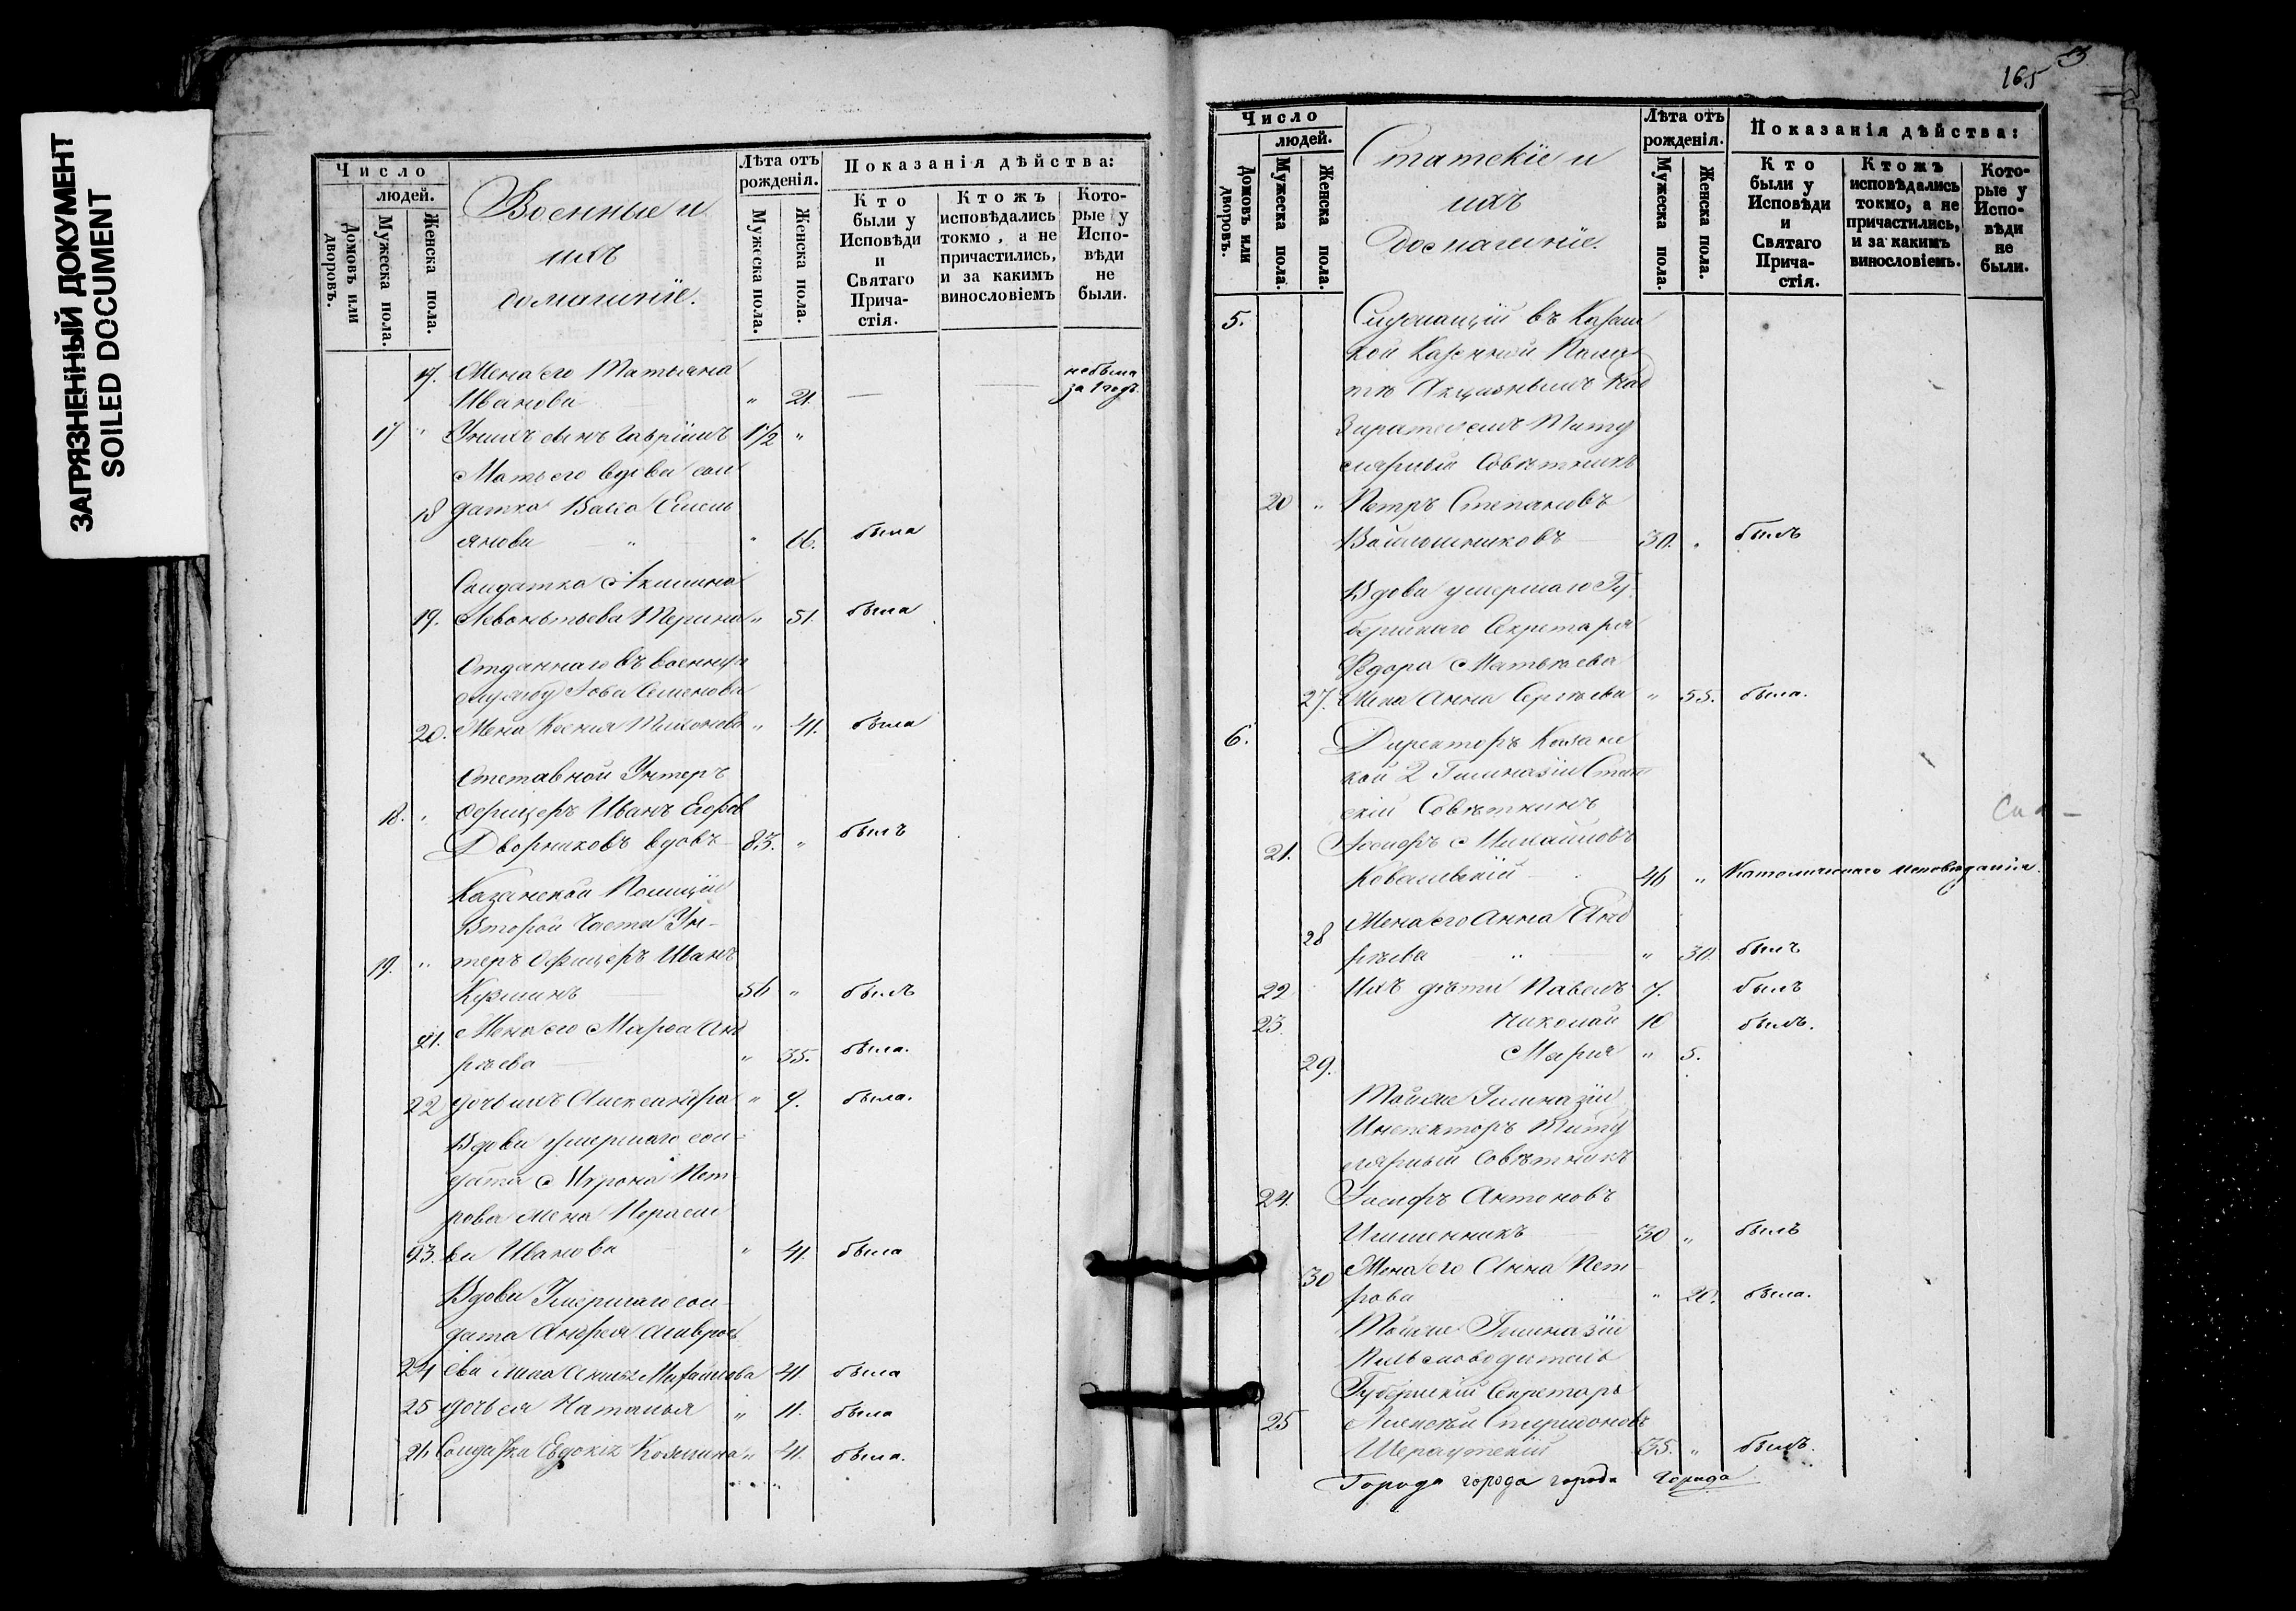 ЗАГРЯЗНЕННЫЙ ДОКУМЕНТ
SOILED DOCUMENT
Число
людей.
Домовъ или дворовъ.
Мужеска пола.
Женска пола.
Военные и
ихъ
домашніе.
Лѣта отъ рожденія.
Мужеска пола.
Женска пола.
Показанія дѣйства:
Кто были у Исповѣди и Святаго Причастія.
Ктожъ исповѣдались токмо, а не причастились, и за какимъ винословіемъ
Которые у Исповѣди не были.
17. Жена его Татьяна не была
Иванова " 21. за 1 годъ.
17 " У нихъ сынъ Гавріилъ 1/2 "
Мать его вдова сол
18 датка Васса Емель
янова " " 66. была
Солдатка Акилина
19. Леонтьева " 51. была
Отданнаго въ военную
службу Іова Семенова
20. Жена Ксенія Тихонова " 41. была
Отставной Унтеръ
18. " офицеръ Иванъ Егоровъ
Дворниковъ вдовъ 83. " былъ
Казанской Полиціи
Второй Части Ун-
19. " теръ Офицеръ Иванъ
Кузминъ 56 " былъ
21. Жена его Марфа Анд
рѣева " 35. была.
22 дочь ихъ Александра " 9. была.
Вдова умершаго сол-
дата Мирона Пет
рова жена Параске
23. ва Иванова " 41. была
Вдова Умершаго сол-
дата Андрея Амврос
24 ева жена 41. была
25 дочь ея Наталья " 11. была
26 Солдатка Евдокія " 41. была.
165
Число
людей.
Домовъ или дворовъ.
Мужеска пола.
Женска пола.
Статскіе и
ихъ
домашніе.
Лѣта отъ рожденія.
Мужеска пола.
Женска пола.
Показанія дѣйства:
Кто были у Исповѣди и Святаго Причастія.
Ктожъ исповѣдались токмо, а не причастились, и за какимъ винословіемъ.
Которые у Исповѣди не были.
5. Служащій въ Казан
кой Казенной Пала
тѣ Акцизнымъ Над
зирателемъ Титу
лярный Совѣтникъ
20 " Петръ Степановъ
Войлошниковъ 30. " былъ
Вдова умершаго Гу
бернскаго Секретаря
Ѳедора Матвѣева
27. Жена Анна Сергѣева " 55. была.
6. Директоръ Казанс
кой 2 Гимназіи Стат
скій Совѣтникъ
21. Іосифъ Михайловъ
Ковальскій 46 " Католическаго исповѣданія.
28 Жена его Анна Анд
рѣева " " 30. былъ
22 Ихъ дѣти Павелъ 7. былъ
23. Николай 10 былъ.
29. Марія " 5.
Той же Гимназіи
Инспекторъ Титу
лярный Совѣтникъ
24. Іосифъ Антоновъ
30 " былъ
30 Жена его Анна Пет
рова " 20. была.
Той же Гимназіи
Письмоводитель
Губернскій Секретарь
25 Алексѣй Спиридоновъ
35. " былъ.
Города города города Города